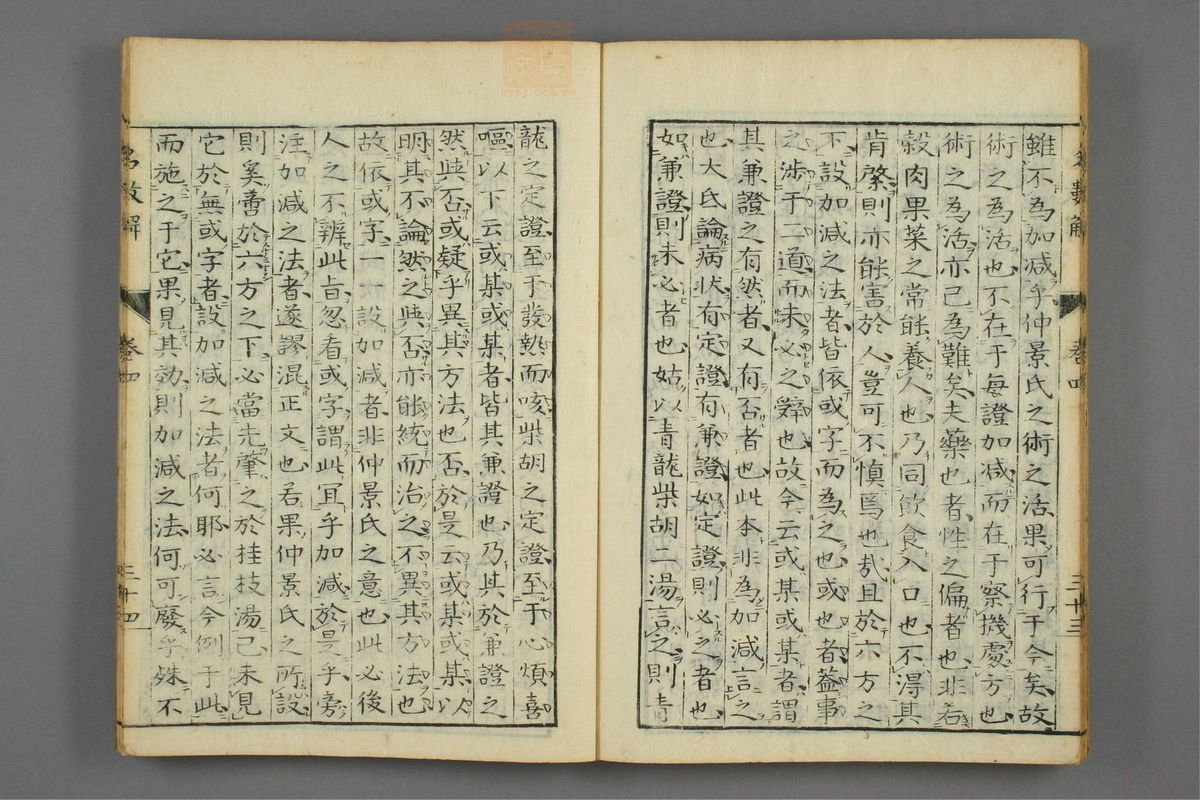 雖不為加減乎仲景氏之術之活果可行于今矣故
術之為活也不在于每證加減而在于察機處方也
術之為活亦已為難矣夫藥也者性之偏者也非若
穀肉果菜之常能養人也乃同飲食入口也不得其
肯綮則亦能害於人豈可不慎焉也哉且於六方之
不設加減之法者皆依或字而為之也或也者葢事
之涉于二道而未必之辭也故今云或某或某者謂
其兼證之有然者又有否者也此本非為加減言之
也大氐論病狀有定證有兼證如定證則必之者也
如兼證則未必者也姑以青龍柴胡二湯言之則青
龍之定證至于發熱而咳柴胡之定證至于心煩喜
嘔以下云或某或某者皆其兼證也乃其於兼證之
然與否或疑乎異其方法也否於是云或某或某以
明其不論然之與否亦能統而治之不異其方法也
故依或字一一設加減者非仲景氏之意也此必後
人之不辨此旨忽看或字謂此冝乎加減於是乎旁
注加減之法者遂謬混正文也若果仲景氏之所設
則奚啻於六方之下必當先肇之於桂枝湯已未見
它於無或字者設加減之法者何耶必言今例于此
而施之于它果見其効則加減之法何可廢乎殊不
卷四
三十三
名數解
卷四
三十四